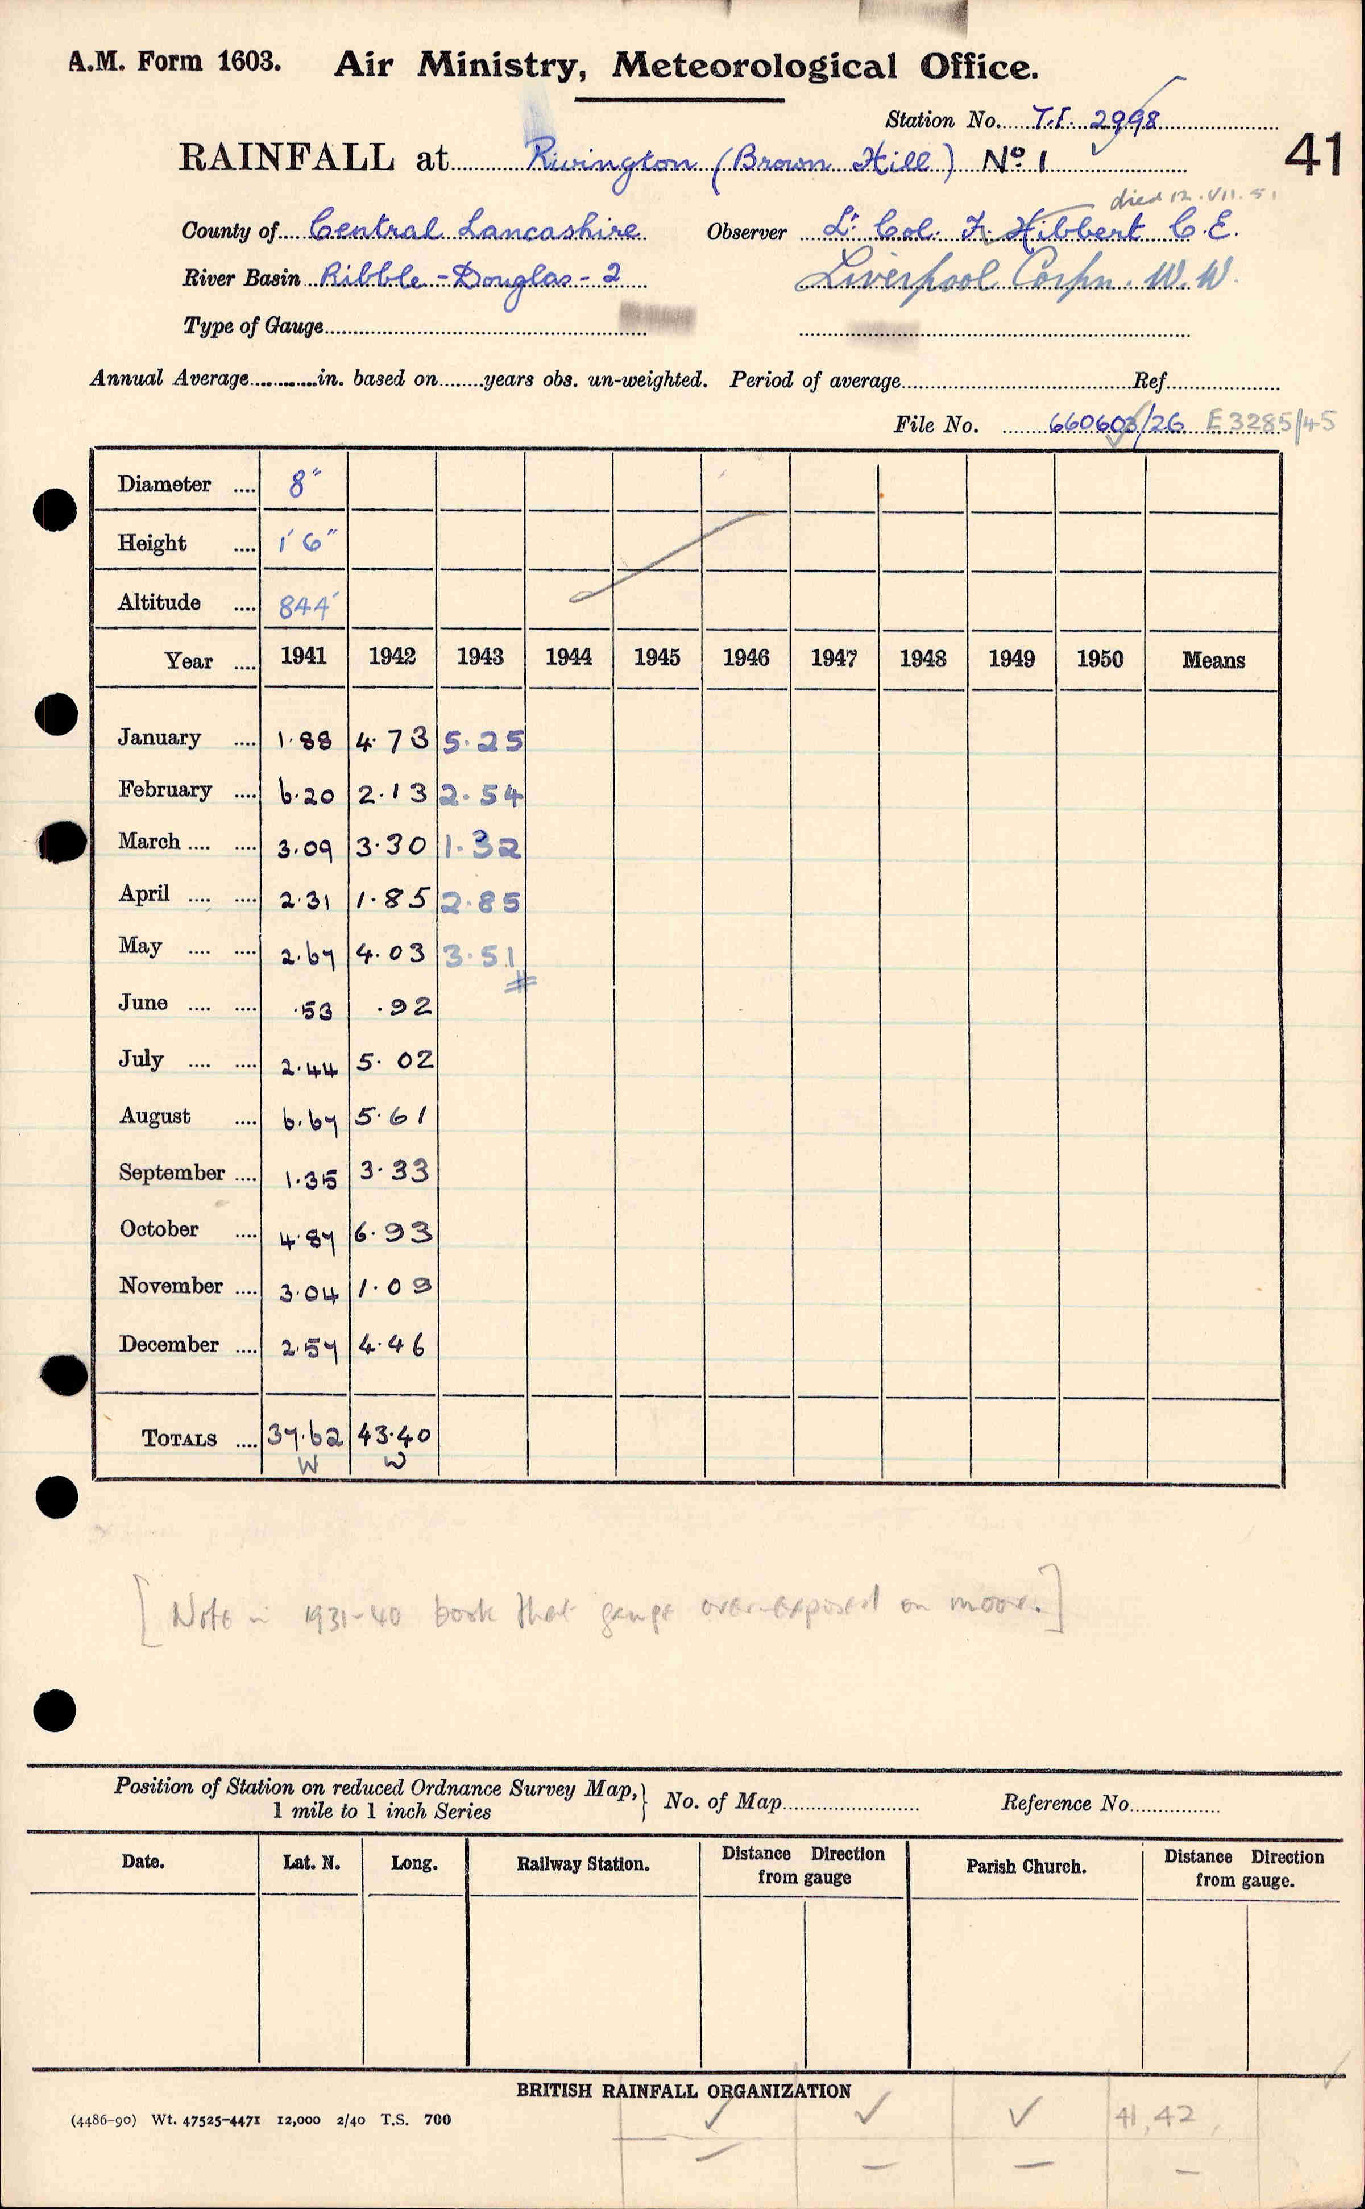 A.M. Form 1603. Air Ministry, Meteorological Office.
Station No. T.I. 2998
RAINFALL at Rivington (Brown Hill) No. 1 41
died 12.VII.51
County of Central Lancashire Observer Lt. Col. F. Hibbert C.E.
River Basin Ribble - Douglas - 2 Liverpool Corpn. W.W.
Type of Gauge
Annual Average in. based on years obs. un-weighted. Period of average Ref
File No. 660603/26 E3285/45
Diameter 8"
Height 1' 6"
Altitude 844'
Year 1941 1942 1943 1944 1945 1946 1947 1948 1949 1950 Means
January 1.88 4.73 5.25
February 6.20 2.13 2.54
March 3.09 3.30 1.32
April 2.31 1.85 2.85
May 2.67 4.03 3.51
#
June .53 .92
July 2.44 5.02
August 6.67 5.61
September 1.35 3.33
October 4.87 6.93
November 3.04 1.09
December 2.57 4.46
TOTALS 37.62 43.40
W W
[Note in 1931-40 book that gauge over-exposed on moor.]
Position of Station on reduced Ordnance Survey Map, } No. of Map Reference No.
1 mile to 1 inch Series
Date. Lat. N. Long. Railway Station. Distance Direction from gauge Parish Church. Distance Direction from gauge.
BRITISH RAINFALL ORGANIZATION
(4486-90) Wt. 47525-4471 12,000 2/40 T.S. 700
41, 42,